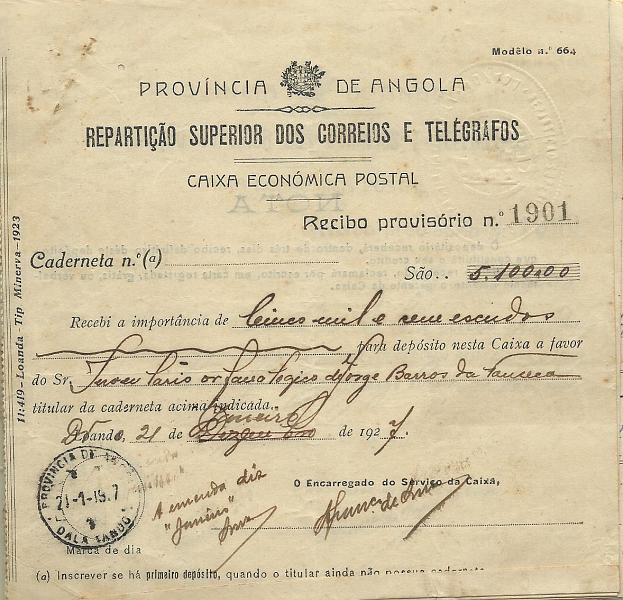 Modêlo n.º 664
PROVÍNCIA DE ANGOLA
REPARTIÇÃO SUPERIOR DOS CORREIOS E TELÉGRAFOS
CAIXA ECONÓMICA POSTAL
Recibo provisório n.º 1901
Caderneta n.º (a)
São.. 5.100$00
Recebi a importância de Cinco mil e cem escudos
para depósito nesta Caixa a favor
do Sr. Jorge Barros da Fonseca
titular da caderneta acima indicada.
Janeiro
Dtando, 21 de Dezembro de 1927.
PROVINCIA DE ANGOLA
21-1-19.7
DALA TANDO
Marca de dia
A emenda diz
"Janeiro"
O Encarregado do Serviço da Caixa,
(a) Inscrever se há primeiro depósito, quando o titular ainda não possue caderneta
11:419—Loanda—Tip Minerva—1923